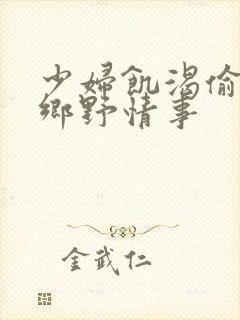 少婦飢渴偷
鄉野情事
金武仁